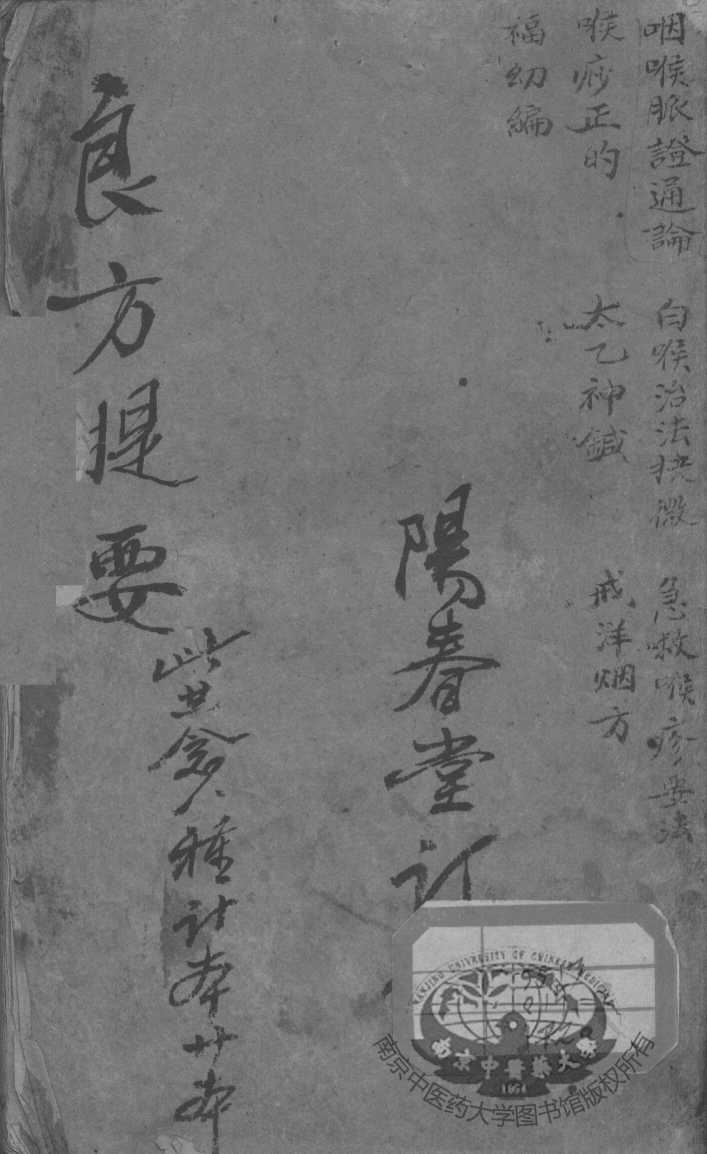 咽喉脈證通論 白喉治法抉微 急救喉疹要法
喉痧正的 太乙神鍼 戒洋烟方
福幼編
陽春堂訂
良方提要
共念八種計本廿本
NANJING UNIVERSITY OF CHINESE MEDICINE
南京中醫藥大學
1954
南京中医药大学图书馆版权所有